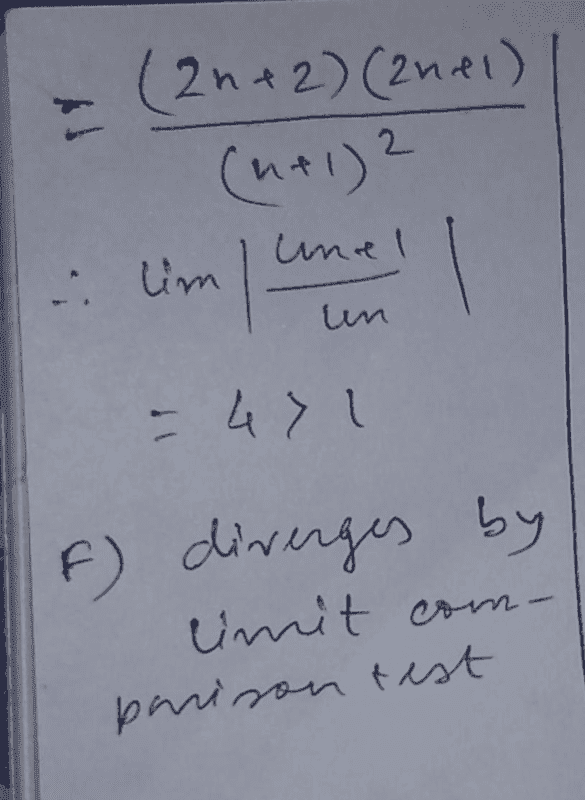 = (2n+2)(2n+1)
(n+1)²
∴ lim | un+1 |
un
= 4 > 1
F) diverges by
limit com-
parison test